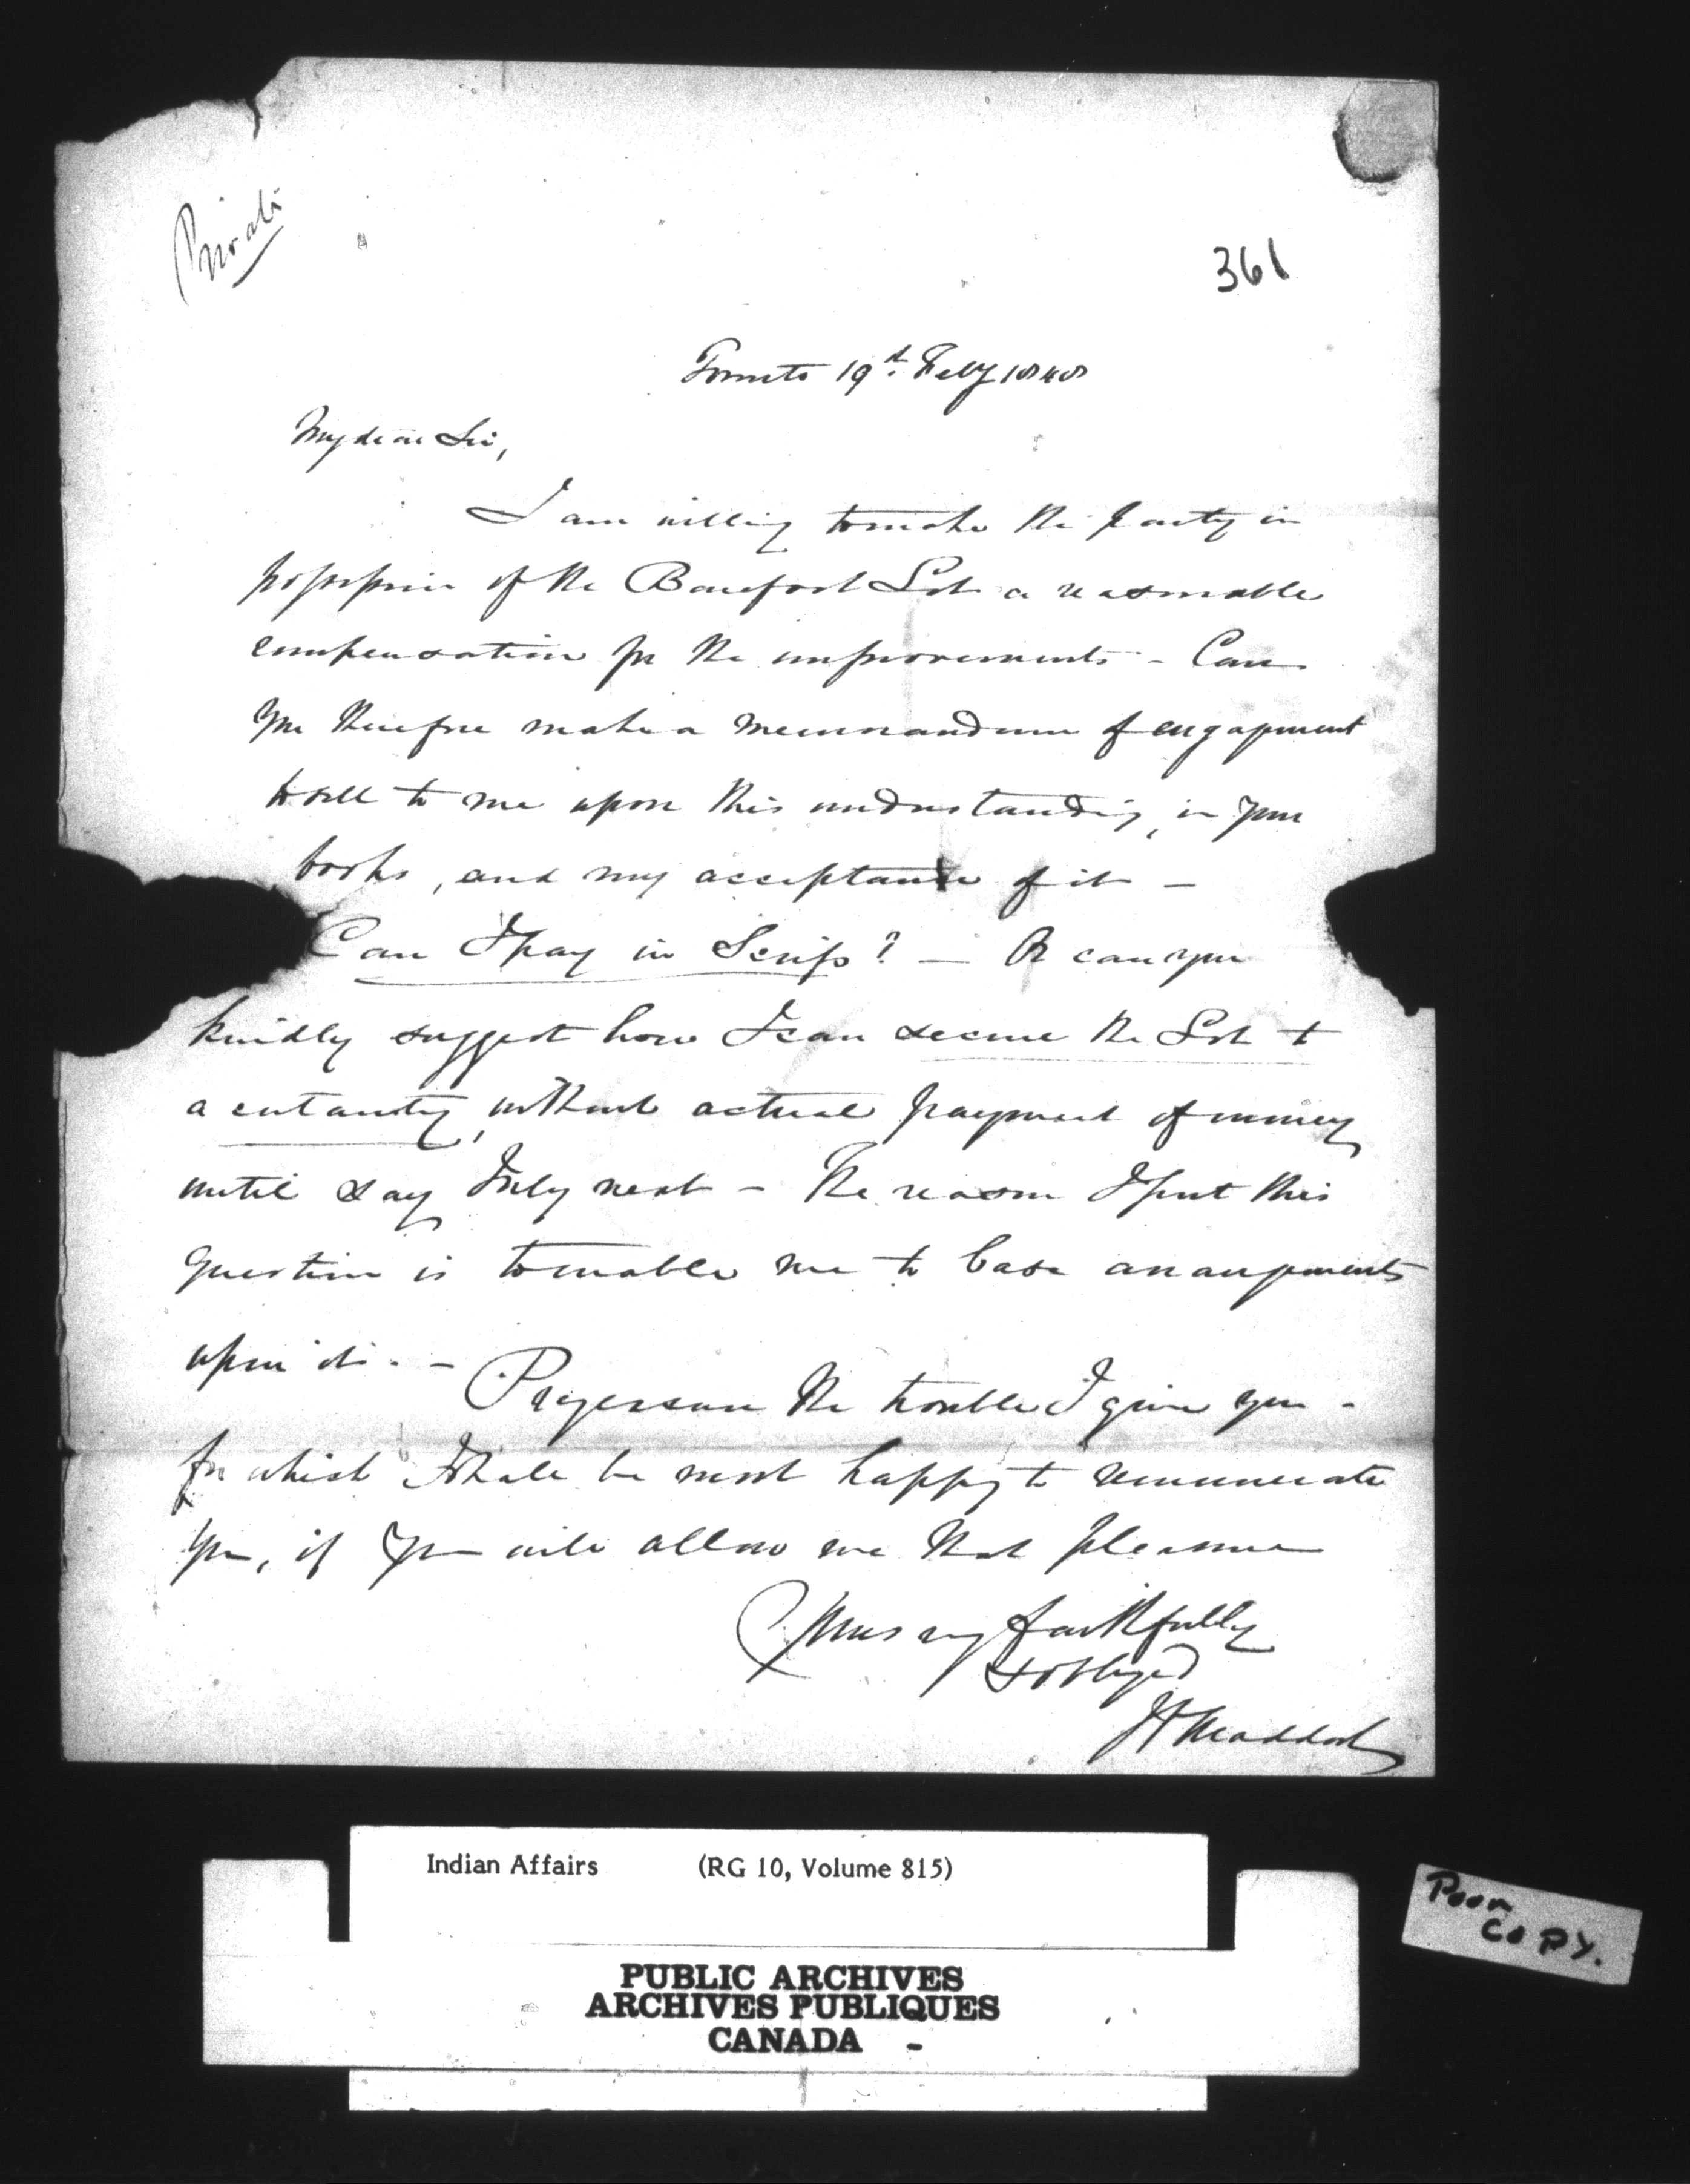 Private
361
Toronto 19th Feby 1848
My dear Sir,
I am willing to make the party in
possession of the Lot a reasonable
compensation for the improvements - Can
you therefore make a memorandum of engagement
to sell to me upon this understanding, in your
books, and my acceptance of it -
Can I pay in Scrip? - Or can you
kindly suggest how I can secure the Lot to
a certainty, without actual payment of money
until say July next - The reason I put this
question is to enable me to base arrangements
upon it. -
Pray excuse the trouble I give you -
for which I shall be most happy to remunerate
you, if you will allow me that pleasure
Yours very faithfully
& obliged
JH Maddock
Indian Affairs (RG 10, Volume 815)
PUBLIC ARCHIVES
ARCHIVES PUBLIQUES
CANADA
Poor
COPY.